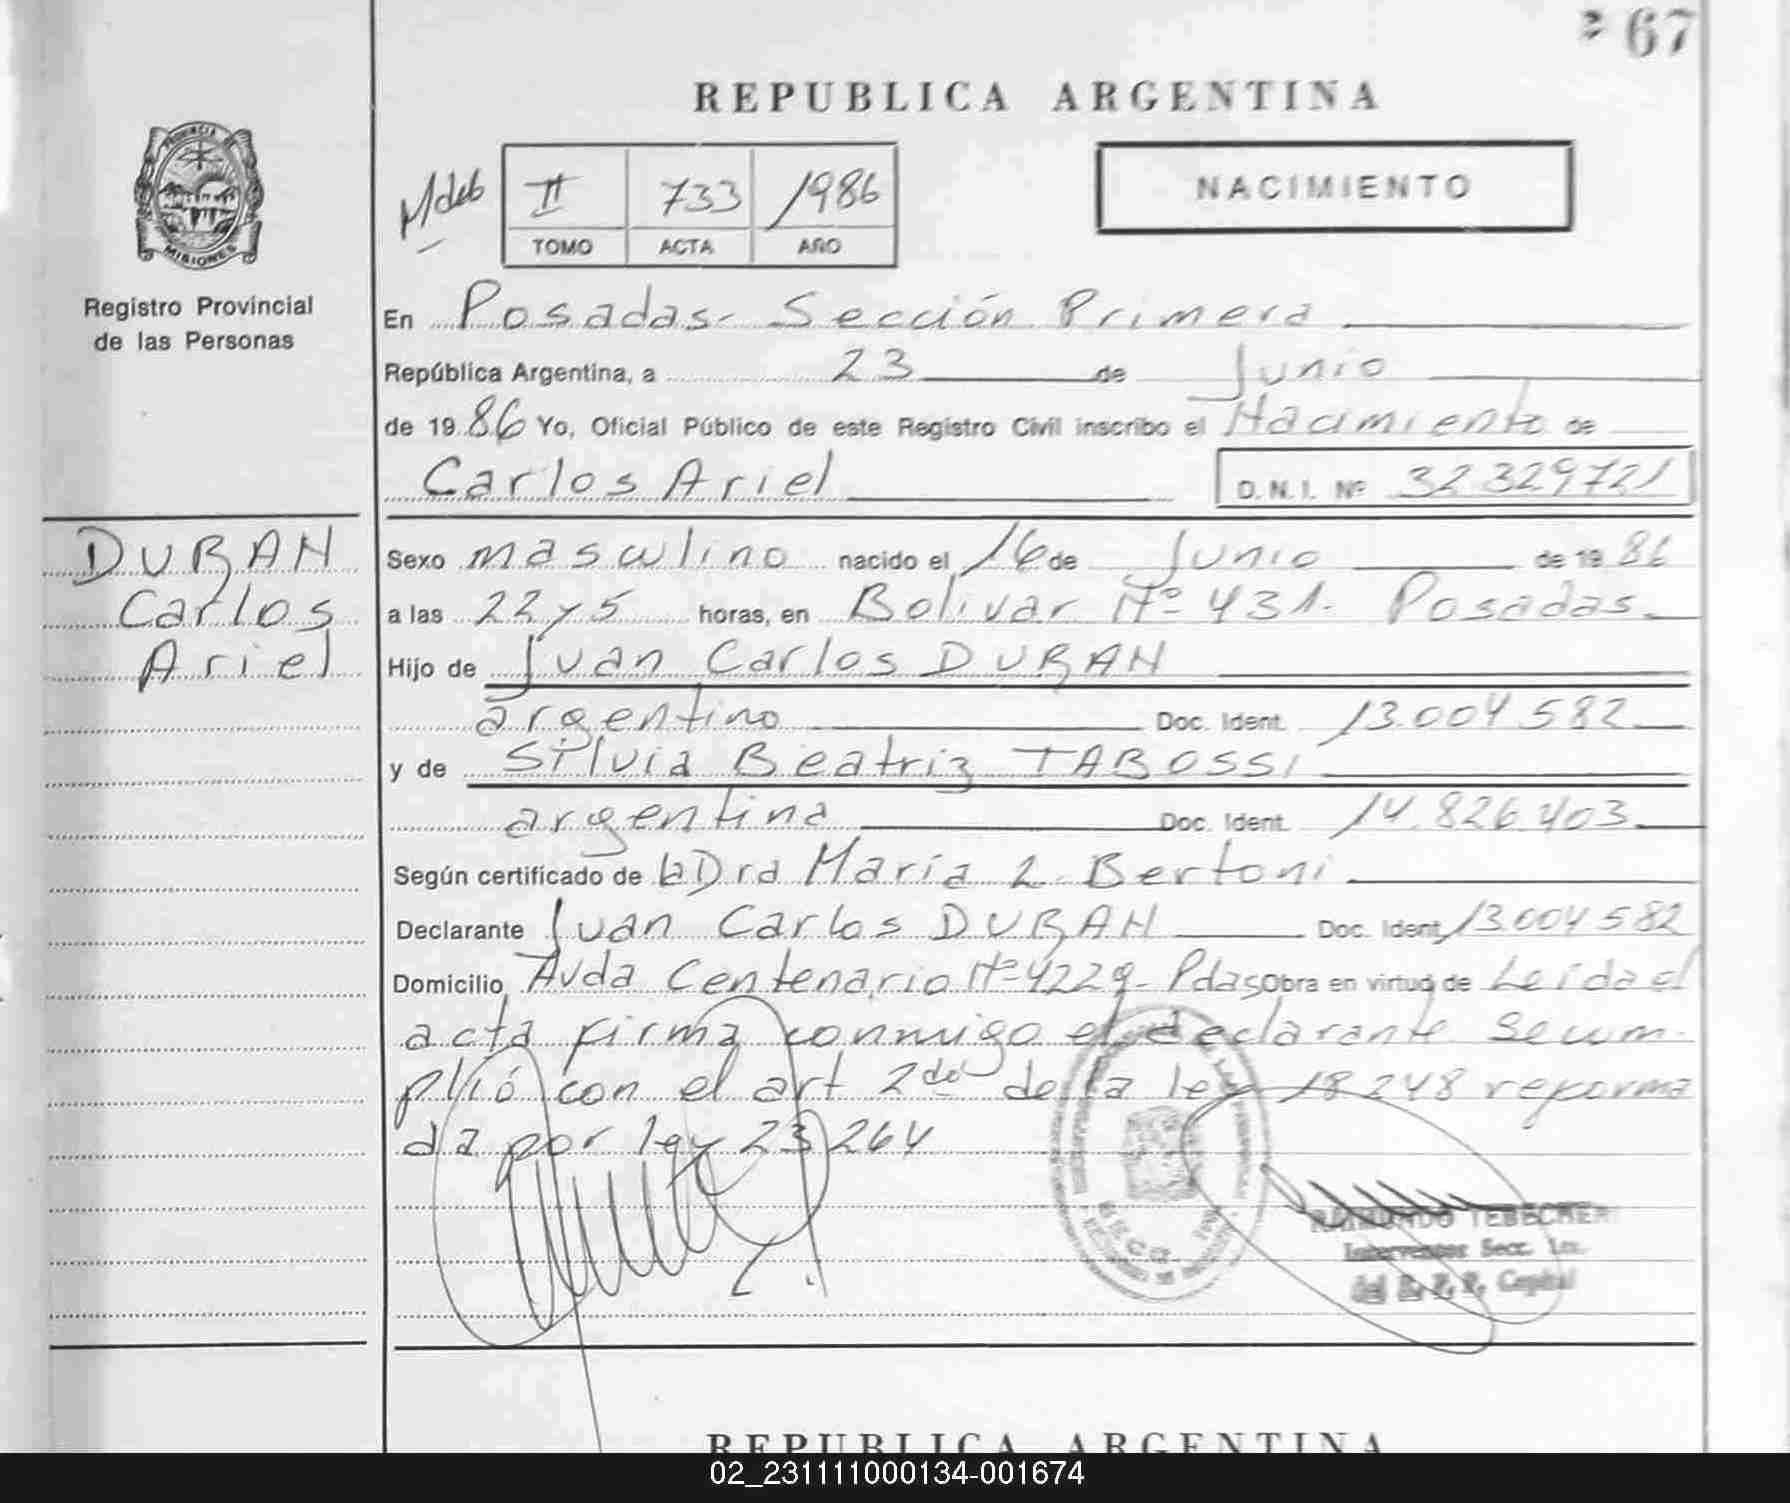 67
REPUBLICA ARGENTINA
PROVINCIA
MISIONES
Registro Provincial
de las Personas
II 733 1986
TOMO ACTA AÑO
NACIMIENTO
En Posadas- Sección Primera
República Argentina, a 23 de Junio
de 1986 Yo, Oficial Público de este Registro Civil inscribo el Nacimiento de
Carlos Ariel D.N.I. Nº 32329721
DURAN
Carlos
Ariel
Sexo masculino nacido el 16 de Junio de 1986
a las 22 y 5 horas, en Bolivar Nº 431. Posadas
Hijo de Juan Carlos DURAN
argentino Doc. Ident. 13.004582
y de Silvia Beatriz TABOSSI
argentina Doc. Ident. 14.826.403
Según certificado de la Dra María L. Bertoni
Declarante Juan Carlos DURAN Doc. Ident. 13.004582
Domicilio Avda Centenario Nº 4229- Pdas Obra en virtud de Leida el
acta firma conmigo el declarante Se cum-
plió con el art 2do de la ley 18248 reforma
da por ley 23264
RAIMUNDO TEBECHERI
Interventor Secc. 1ra.
del R. P. P. Capital
REPUBLICA ARGENTINA
02_231111000134-001674